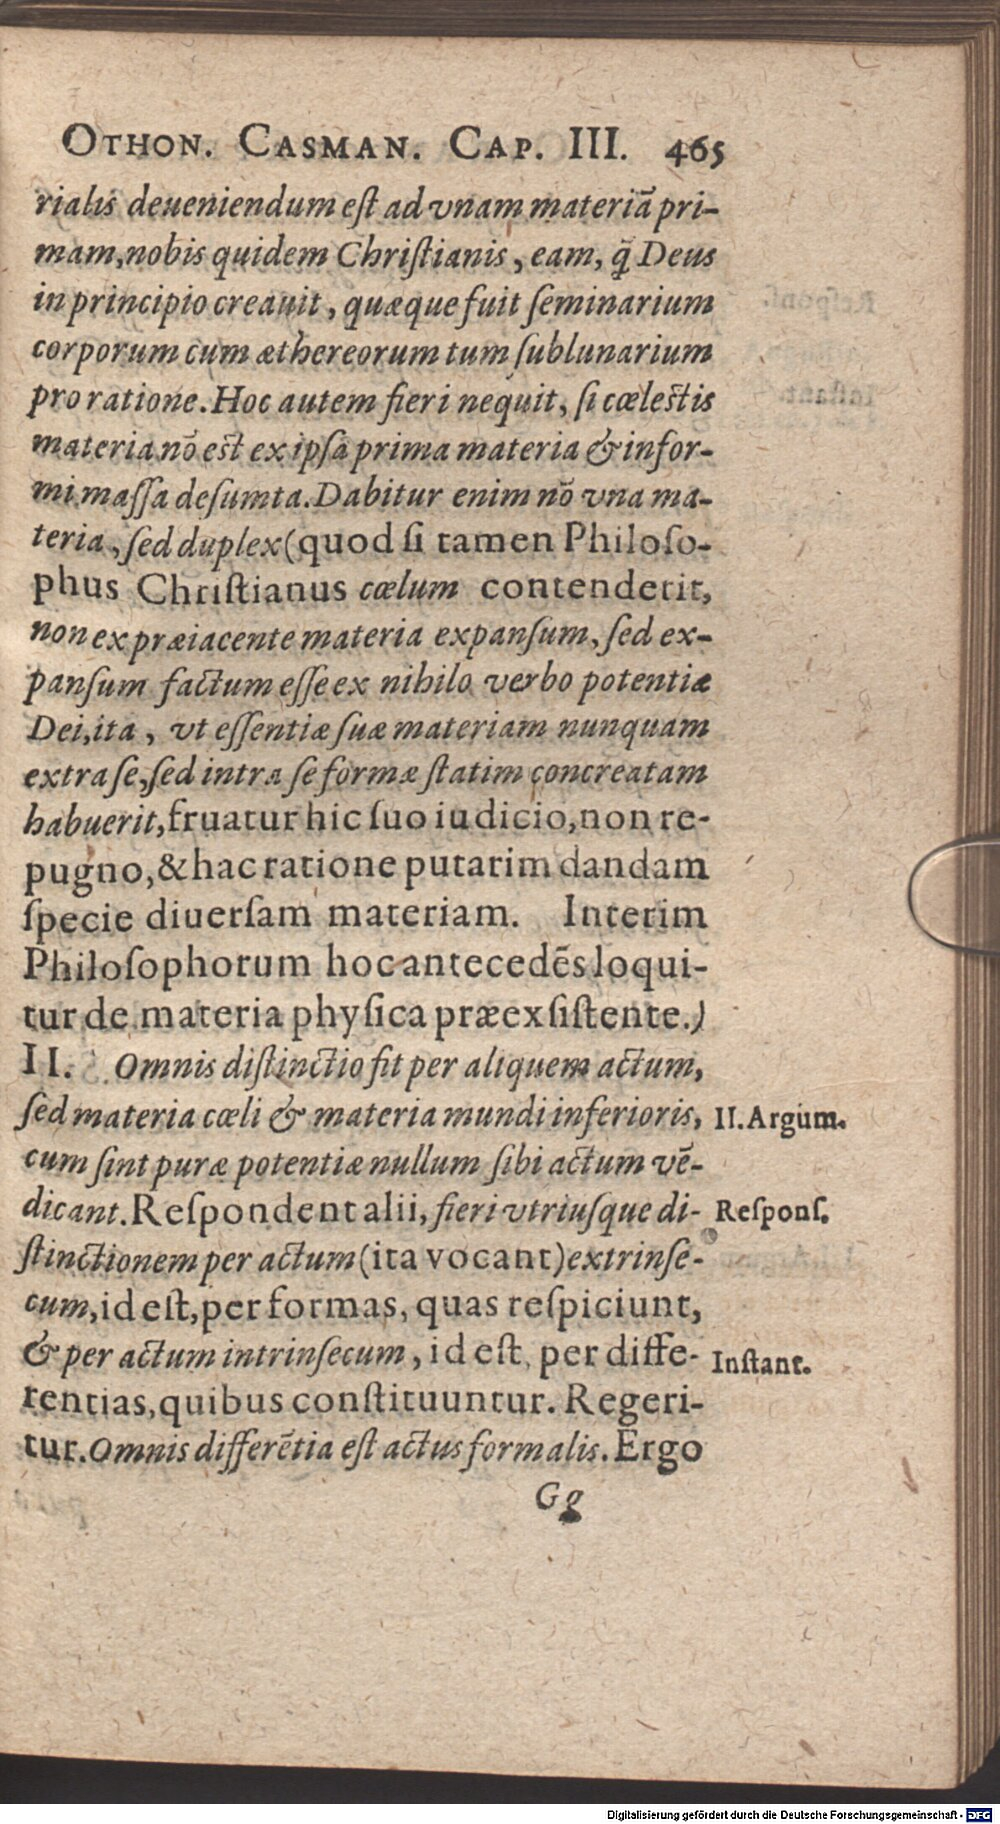 OTHON. CASMAN. CAP. III. 465
rialis deueniendum eſt ad vnam materiā pri-
mam, nobis quidem Chriſtianis, eam, q̃ Deus
in principio creauit, quæque fuit ſeminarium
corporum cum æthereorum tum ſublunarium
pro ratione. Hoc autem fieri nequit, ſi cæleſtis
materia nō est ex ipſa prima materia & infor-
mi maſſa deſumta. Dabitur enim nō vna ma-
teria, ſed duplex (quod ſi tamen Philoſo-
phus Chriſtianus cælum contenderit,
non ex præiacente materia expanſum, ſed ex-
panſum factum eſſe ex nihilo verbo potentiæ
Dei, ita, vt eſſentiæ ſuæ materiam nunquam
extra ſe, ſed intra ſe formæ ſtatim concreatam
habuerit, fruatur hic ſuo iudicio, non re-
pugno, & hac ratione putarim dandam
ſpecie diuerſam materiam. Interim
Philoſophorum hoc antecedēs loqui-
tur de materia phyſica præexſiſtente.)
II. Omnis diſtinctio fit per aliquem actum,
ſed materia cæli & materia mundi inferioris, II. Argum.
cum ſint puræ potentiæ nullum ſibi actum vē-
dicant. Reſpondent alii, fieri vtriuſque di- Reſponſ.
ſtinctionem per actum (ita vocant) extrinſe-
cum, id eſt, per formas, quas reſpiciunt,
& per actum intrinſecum, id eſt, per diffe- Inſtant.
rentias, quibus conſtituuntur. Regeri-
tur. Omnis differētia eſt actus formalis. Ergo
Gg
Digitalisierung gefördert durch die Deutsche Forschungsgemeinschaft - DFG